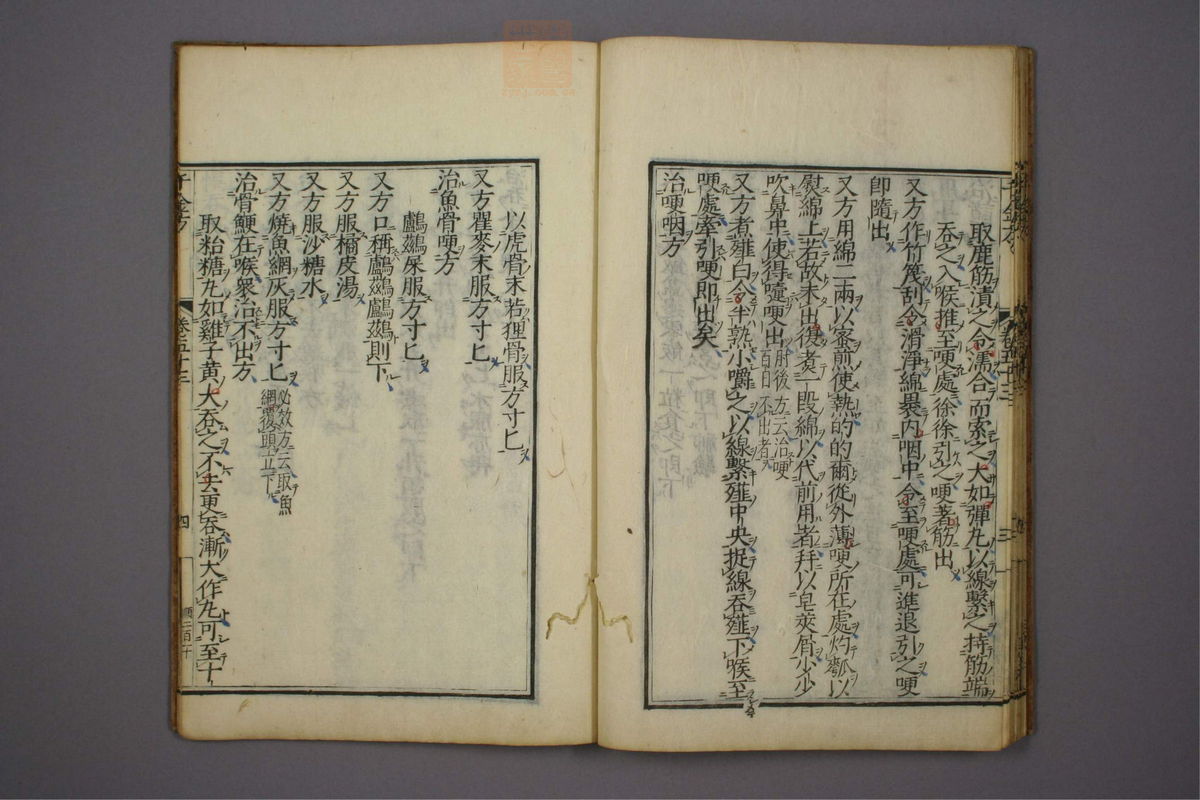 取鹿筋漬之令濡合而索之大如彈丸以線繫之持筋端
吞之入喉推至哽處徐徐引之哽著筋出
又方作竹篾刮令滑淨綿褁内咽中令至哽處可進退引之哽
即隨出
又方用綿二兩以蜜煎使熱的的爾從外薄哽所在處灼瓠以
熨綿上若故未出復煮一段綿以代前用者并以皂莢屑少少
吹鼻中使得嚏哽出肘後方云治哽百日不出者
又方煮薤白令半熟小嚼之以線繫薤中央捉線吞薤下喉至
哽處牽引哽即出矣
治哽咽方
以虎骨末若狸骨服方寸匕
又方瞿麥末服方寸匕
治魚骨哽方
鸕鷀屎服方寸匕
又方口稱鸕鷀鸕鷀則下
又方服橘皮湯
又方服沙糖水
又方燒魚網灰服方寸匕必效方云取魚網覆頭立下
治骨鯁在喉衆治不出方
取粘糖丸如雞子黄大吞之不去更吞漸大作丸可至十
千金方
卷五十三
四